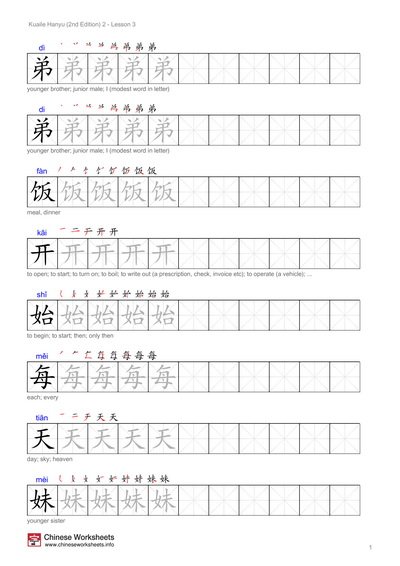 Kuaile Hanyu (2nd Edition) 2 - Lesson 3
dì
弟 弟 弟 弟 弟
younger brother; junior male; I (modest word in letter)
di
弟 弟 弟 弟 弟
younger brother; junior male; I (modest word in letter)
fàn
饭 饭 饭 饭 饭
meal, dinner
kāi
开 开 开 开 开
to open; to start; to turn on; to boil; to write out (a prescription, check, invoice etc); to operate (a vehicle); ...
shǐ
始 始 始 始 始
to begin; to start; then; only then
měi
每 每 每 每 每
each; every
tiān
天 天 天 天 天
day; sky; heaven
mèi
妹 妹 妹 妹 妹
younger sister
Chinese Worksheets
www.chineseworksheets.info
1